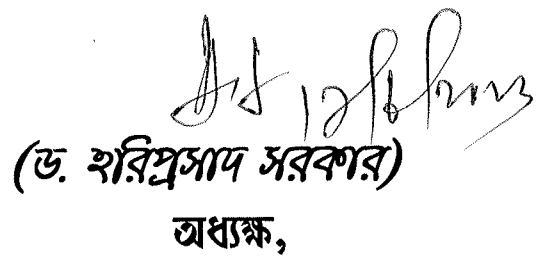 (ড. হরিপ্রসাদ সরকার)
অধ্যক্ষ,